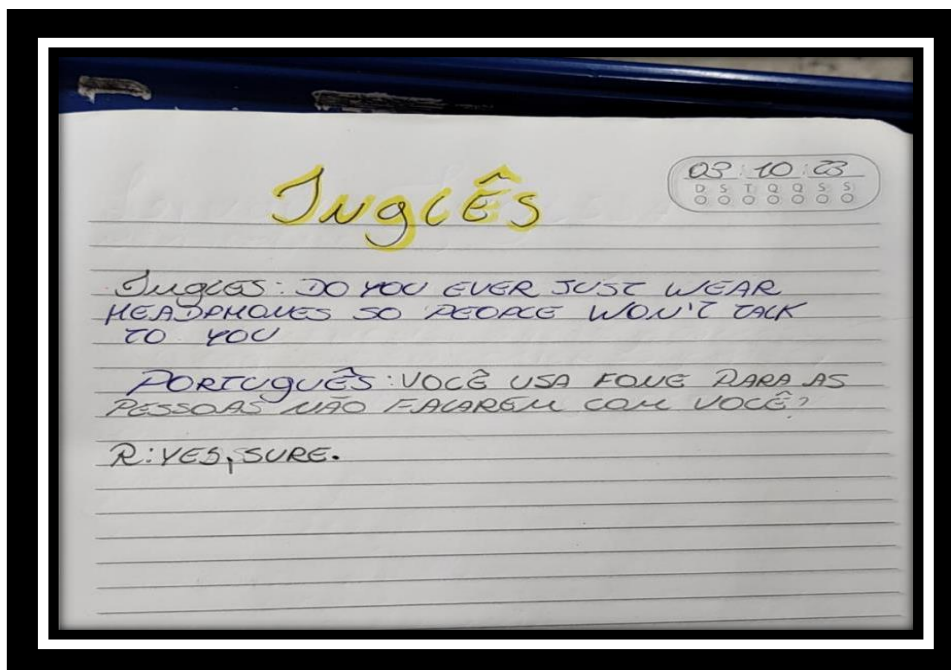 Inglês
03:10:23
D S T Q Q S S
Ingles: DO YOU EVER JUST WEAR
HEADPHONES SO PEOPLE WON'T TALK
TO YOU
PORTUGUÊS: VOCÊ USA FONE PARA AS
PESSOAS NÃO FALAREM COM VOCÊ?
R: YES, SURE.